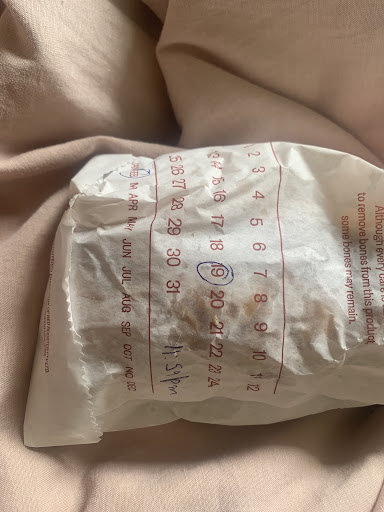 Although every care
to remove bones from this product
some bones may remain.
2 3 4 5 6 7 8 9 10 11 12
14 16 17 18 19 20 21 22 23 24
25 26 27 28 29 30 31 11:59pm
M APR MY JUN JUL AUG SEP OCT NO DEC